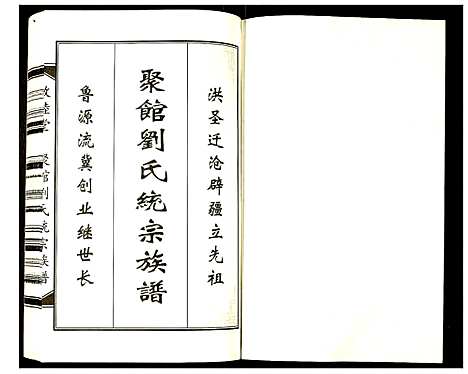 洪圣迁沧辟疆立先祖
聚館劉氏統宗族譜
鲁源流冀创业继世长
敦睦堂 聚館劉氏統宗族譜